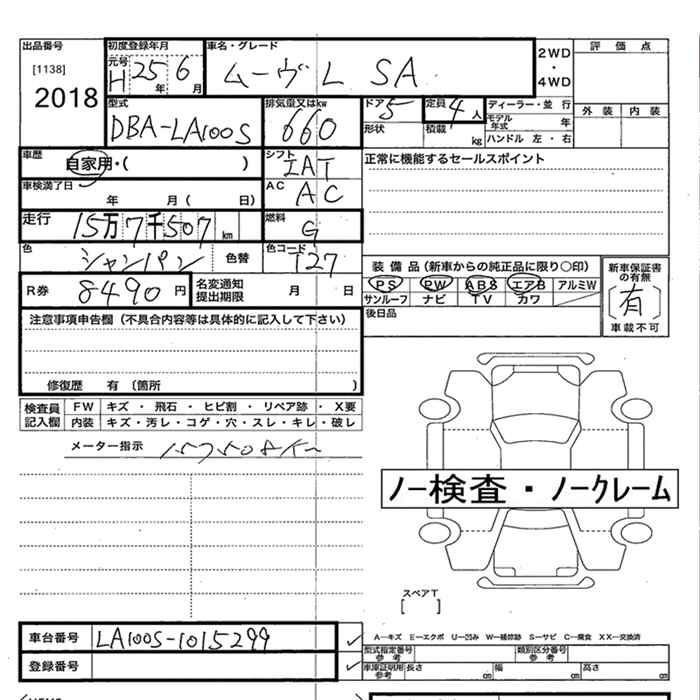 出品番号
[1138]
2018
初度登録年月
元号
H 25年 6月
車名・グレード
ムーヴ L SA
2WD
・
4WD
評価点
外装 内装
型式
DBA-LA100S
排気量又はkw
660
ドア
5
形状
定員
4人
積載
kg
ディーラー・並行
モデル年式 年
ハンドル 左・右
車歴
自家用・( )
シフト
IAT
正常に機能するセールスポイント
車検満了日
年 月( 日)
AC
AC
走行
15万7千507km
燃料
G
色
シャンパン
色替
色コード
T27
装備品(新車からの純正品に限り○印)
PS PW ABS エアB アルミW
サンルーフ ナビ TV カワ
新車保証書の有無
[有]
車載不可
R券
8490円
名変通知
提出期限
月 日
後日品
注意事項申告欄(不具合内容等は具体的に記入して下さい)
修復歴 有 〔箇所 〕
検査員
記入欄
FW キズ ・ 飛石 ・ ヒビ割 ・ リペア跡 ・ X要
内装 キズ・汚レ・コゲ・穴・スレ・キレ・破レ
メーター指示 157508K
ノー検査・ノークレーム
スペアT
[ ]
車台番号 LA100S-1015299
登録番号
A−キズ E−エクボ U−凹み W−補修跡 S−サビ C−腐食 XX−交換済
型式指定番号
参考
類別区分番号
参考
車庫証明用
参考
長さ cm 幅 cm 高さ cm